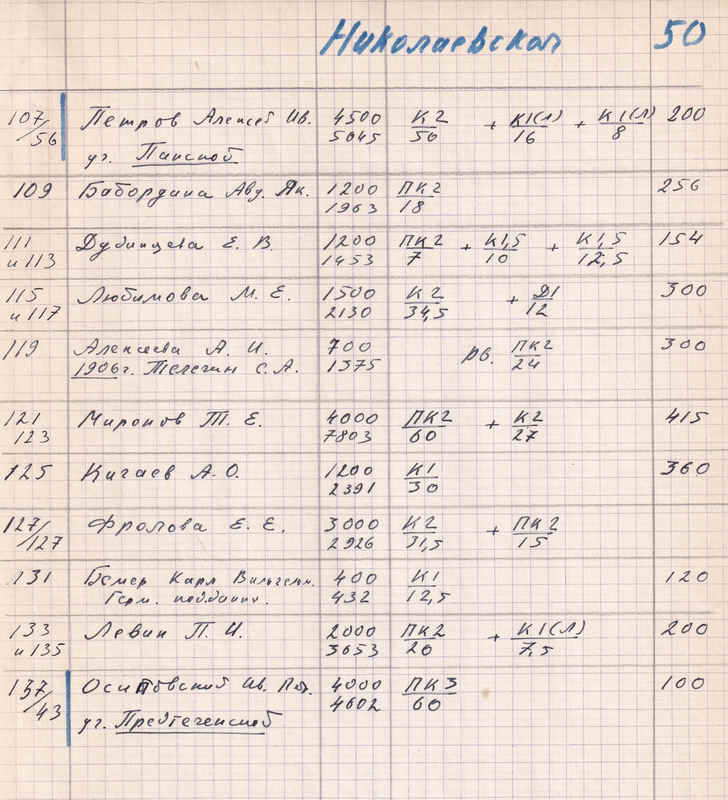 Николаевская 50
107/56 Петров Алексей Ив. 4500 К2 + К1(Л) + К1(Л) 200
5045 50 16 8
уг. Панской
109 Бабордина Авд. Як. 1200 ПК2 256
1963 18
111 Дубинцева Е. В. 1200 ПК2 + К1,5 + К1,5 154
и 113 1453 7 10 12,5
115 Любимова М. Е. 1500 К2 + Д1 300
и 117 2130 34,5 12
119 Алексеева А. И. 700 рв. ПК2 300
1906 г. Телегин С. А. 1375 24
121 Миронов Т. Е. 4000 ПК2 + К2 415
123 7803 60 27
125 Кигаев А. О. 1200 К1 360
2391 30
127/127 Фролова Е. Е. 3000 К2 + ПК2
2926 31,5 15
131 Бемер Карл Вильгельм. 400 К1 120
Герм. поддания. 432 12,5
133 Левин П. И. 2000 ПК2 + К1(Л) 200
и 135 3653 20 7,5
137/43 Осиповский Ив. 4000 ПК3 100
4602 60
уг. Предтеченской